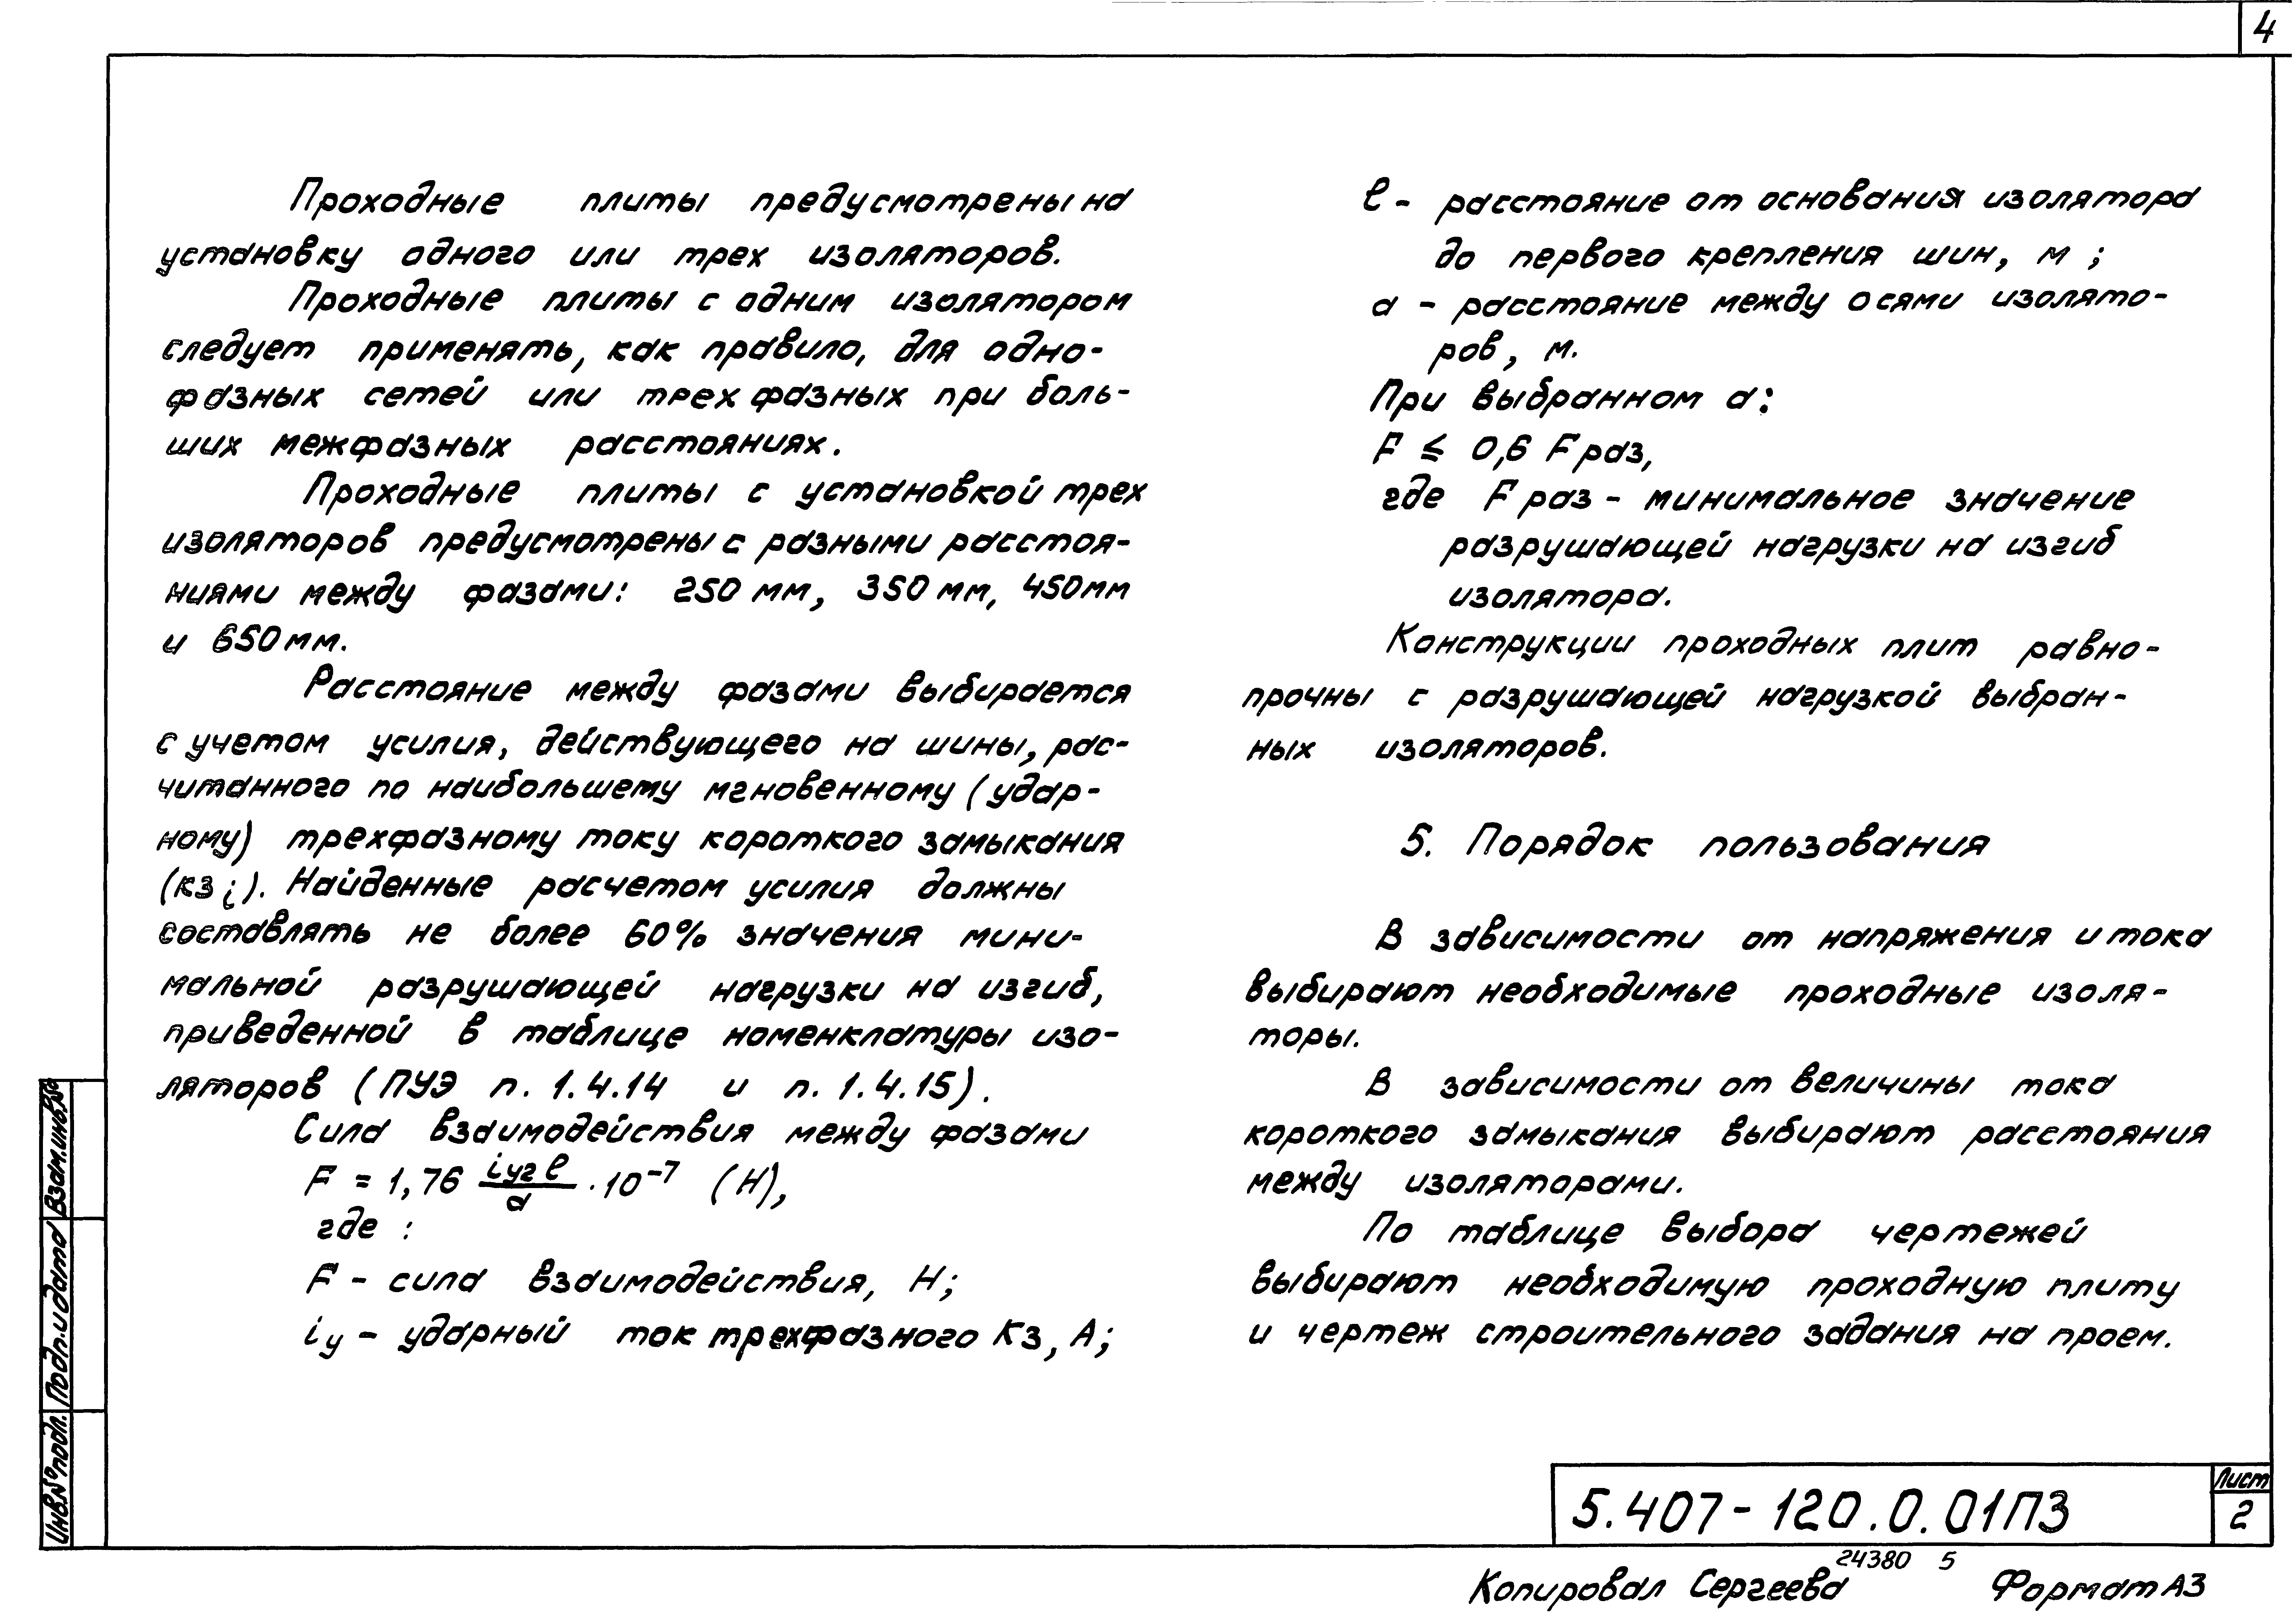 4
Проходные плиты предусмотрены на
установку одного или трех изоляторов.
Проходные плиты с одним изолятором
следует применять, как правило, для одно-
фазных сетей или трехфазных при боль-
ших межфазных расстояниях.
Проходные плиты с установкой трех
изоляторов предусмотрены с разными расстоя-
ниями между фазами: 250 мм, 350 мм, 450мм
и 650мм.
Расстояние между фазами выбирается
с учетом усилия, действующего на шины, рас-
читанного по наибольшему мгновенному (удар-
ному) трехфазному току короткого замыкания
(кз i). Найденные расчетом усилия должны
составлять не более 60% значения мини-
мальной разрушающей нагрузки на изгиб,
приведенной в таблице номенклатуры изо-
ляторов (ПУЭ п. 1.4.14 и п. 1.4.15).
Сила взаимодействия между фазами
F = 1,76 iу² ℓ / a · 10⁻⁷ (Н),
где :
F - сила взаимодействия, Н;
iу - ударный ток трехфазного КЗ, А;
ℓ - расстояние от основания изолятора
до первого крепления шин, м ;
а - расстояние между осями изолято-
ров, м.
При выбранном а:
F ≤ 0,6 Fраз,
где Fраз - минимальное значение
разрушающей нагрузки на изгиб
изолятора.
Конструкции проходных плит равно-
прочны с разрушающей нагрузкой выбран-
ных изоляторов.
5. Порядок пользования
В зависимости от напряжения и тока
выбирают необходимые проходные изоля-
торы.
В зависимости от величины тока
короткого замыкания выбирают расстояния
между изоляторами.
По таблице выбора чертежей
выбирают необходимую проходную плиту
и чертеж строительного задания на проем.
Инв.№подл. Подп.и дата Взам.инв.№
5.407-120.0.01ПЗ
Лист
2
24380 5
Копировал Сергеева Формат А3